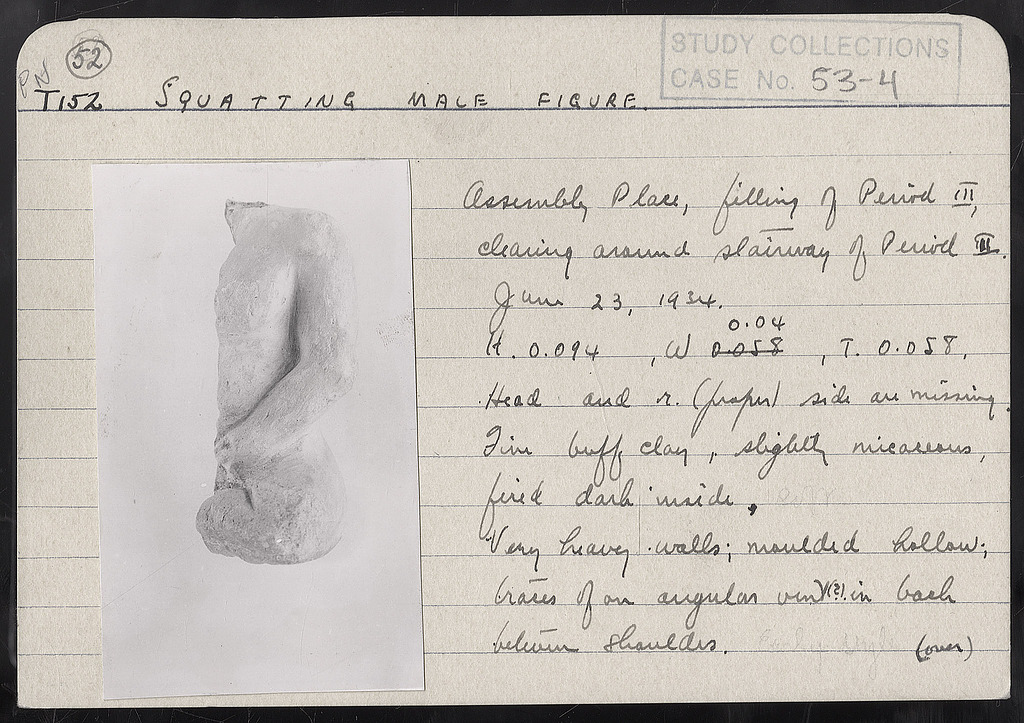 STUDY COLLECTIONS
CASE No. 53-4
52
PN
T152 SQUATTING MALE FIGURE.
Assembly Place, filling of Period III,
clearing around stairway of Period II.
June 23, 1934.
0.04
H. 0.094 , W 0.058 , T. 0.058,
Head and r. (proper) side are missing.
Fine buff clay, slightly micaceous,
fired dark inside,
Very heavy walls; moulded hollow;
traces of an angular vent(?) in back
between shoulders. (over)